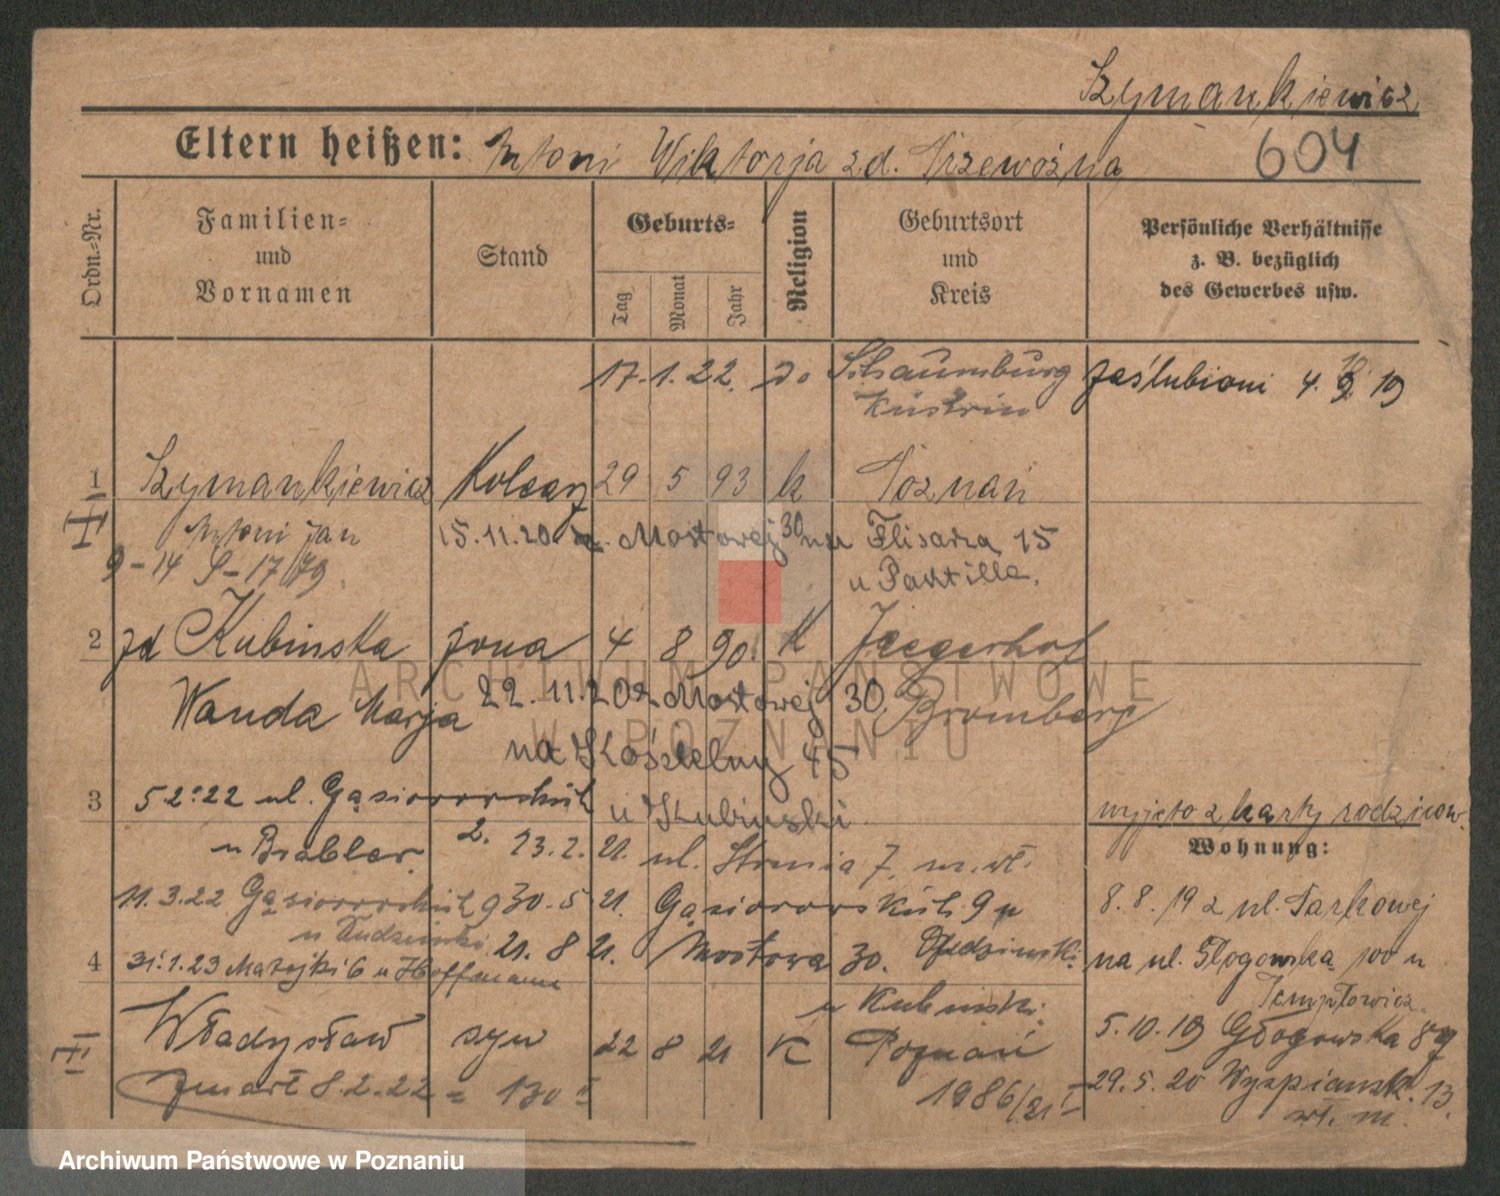 Szymankiewicz
604
Eltern heißen: Antoni Wiktorja zd. Trzewoźna
Ordn.-Nr.
Familien- und Vornamen
Stand
Geburts-
Tag
Monat
Jahr
Religion
Geburtsort und Kreis
Persönliche Verhältnisse z. B. bezüglich des Gewerbes usw.
17. 1. 22. Schaumburg zaślubieni 4. 19
Küstrin
1 Szymankiewicz Kolearz 29 5 93 k Poznań
Antoni Jan 15.11.20. z. Mostowej 30 na Flisacza 15
9-14 S-17/79. u Partille.
2 zd Kubinska żona 4 8 90. K Jaegerhof
Wanda Marja 22.11.20 z Mostowej 30. Bromberg
na Kościelny 45
3 5 2. 22 ul. Gąsiorowskich u Kubinski
wyjęto z karty rodziców.
u Brabler 2. 13.2. 21. ul. Strumia 7, m. wł.
Wohnung:
11.3.22 Gąsiorowskich 9 30.5 21. Gąsiorowskich 9 u
8.8.19 z ul. Parkowej
21. 8 21. Mostowa 30.
na ul. Głogowska 100 u
4 31.1.23 Matejki 6 u Hoffmann
u Kubinski.
5.10.19 Głogowska
Władysław syn 22 8 21 K Poznań
29.5.20 Wyspiansk. 13.
zmarł 8.2.22 = 130 I
1986/21 I
wł. m.
ARCHIWUM PAŃSTWOWE
W POZNANIU
Archiwum Państwowe w Poznaniu